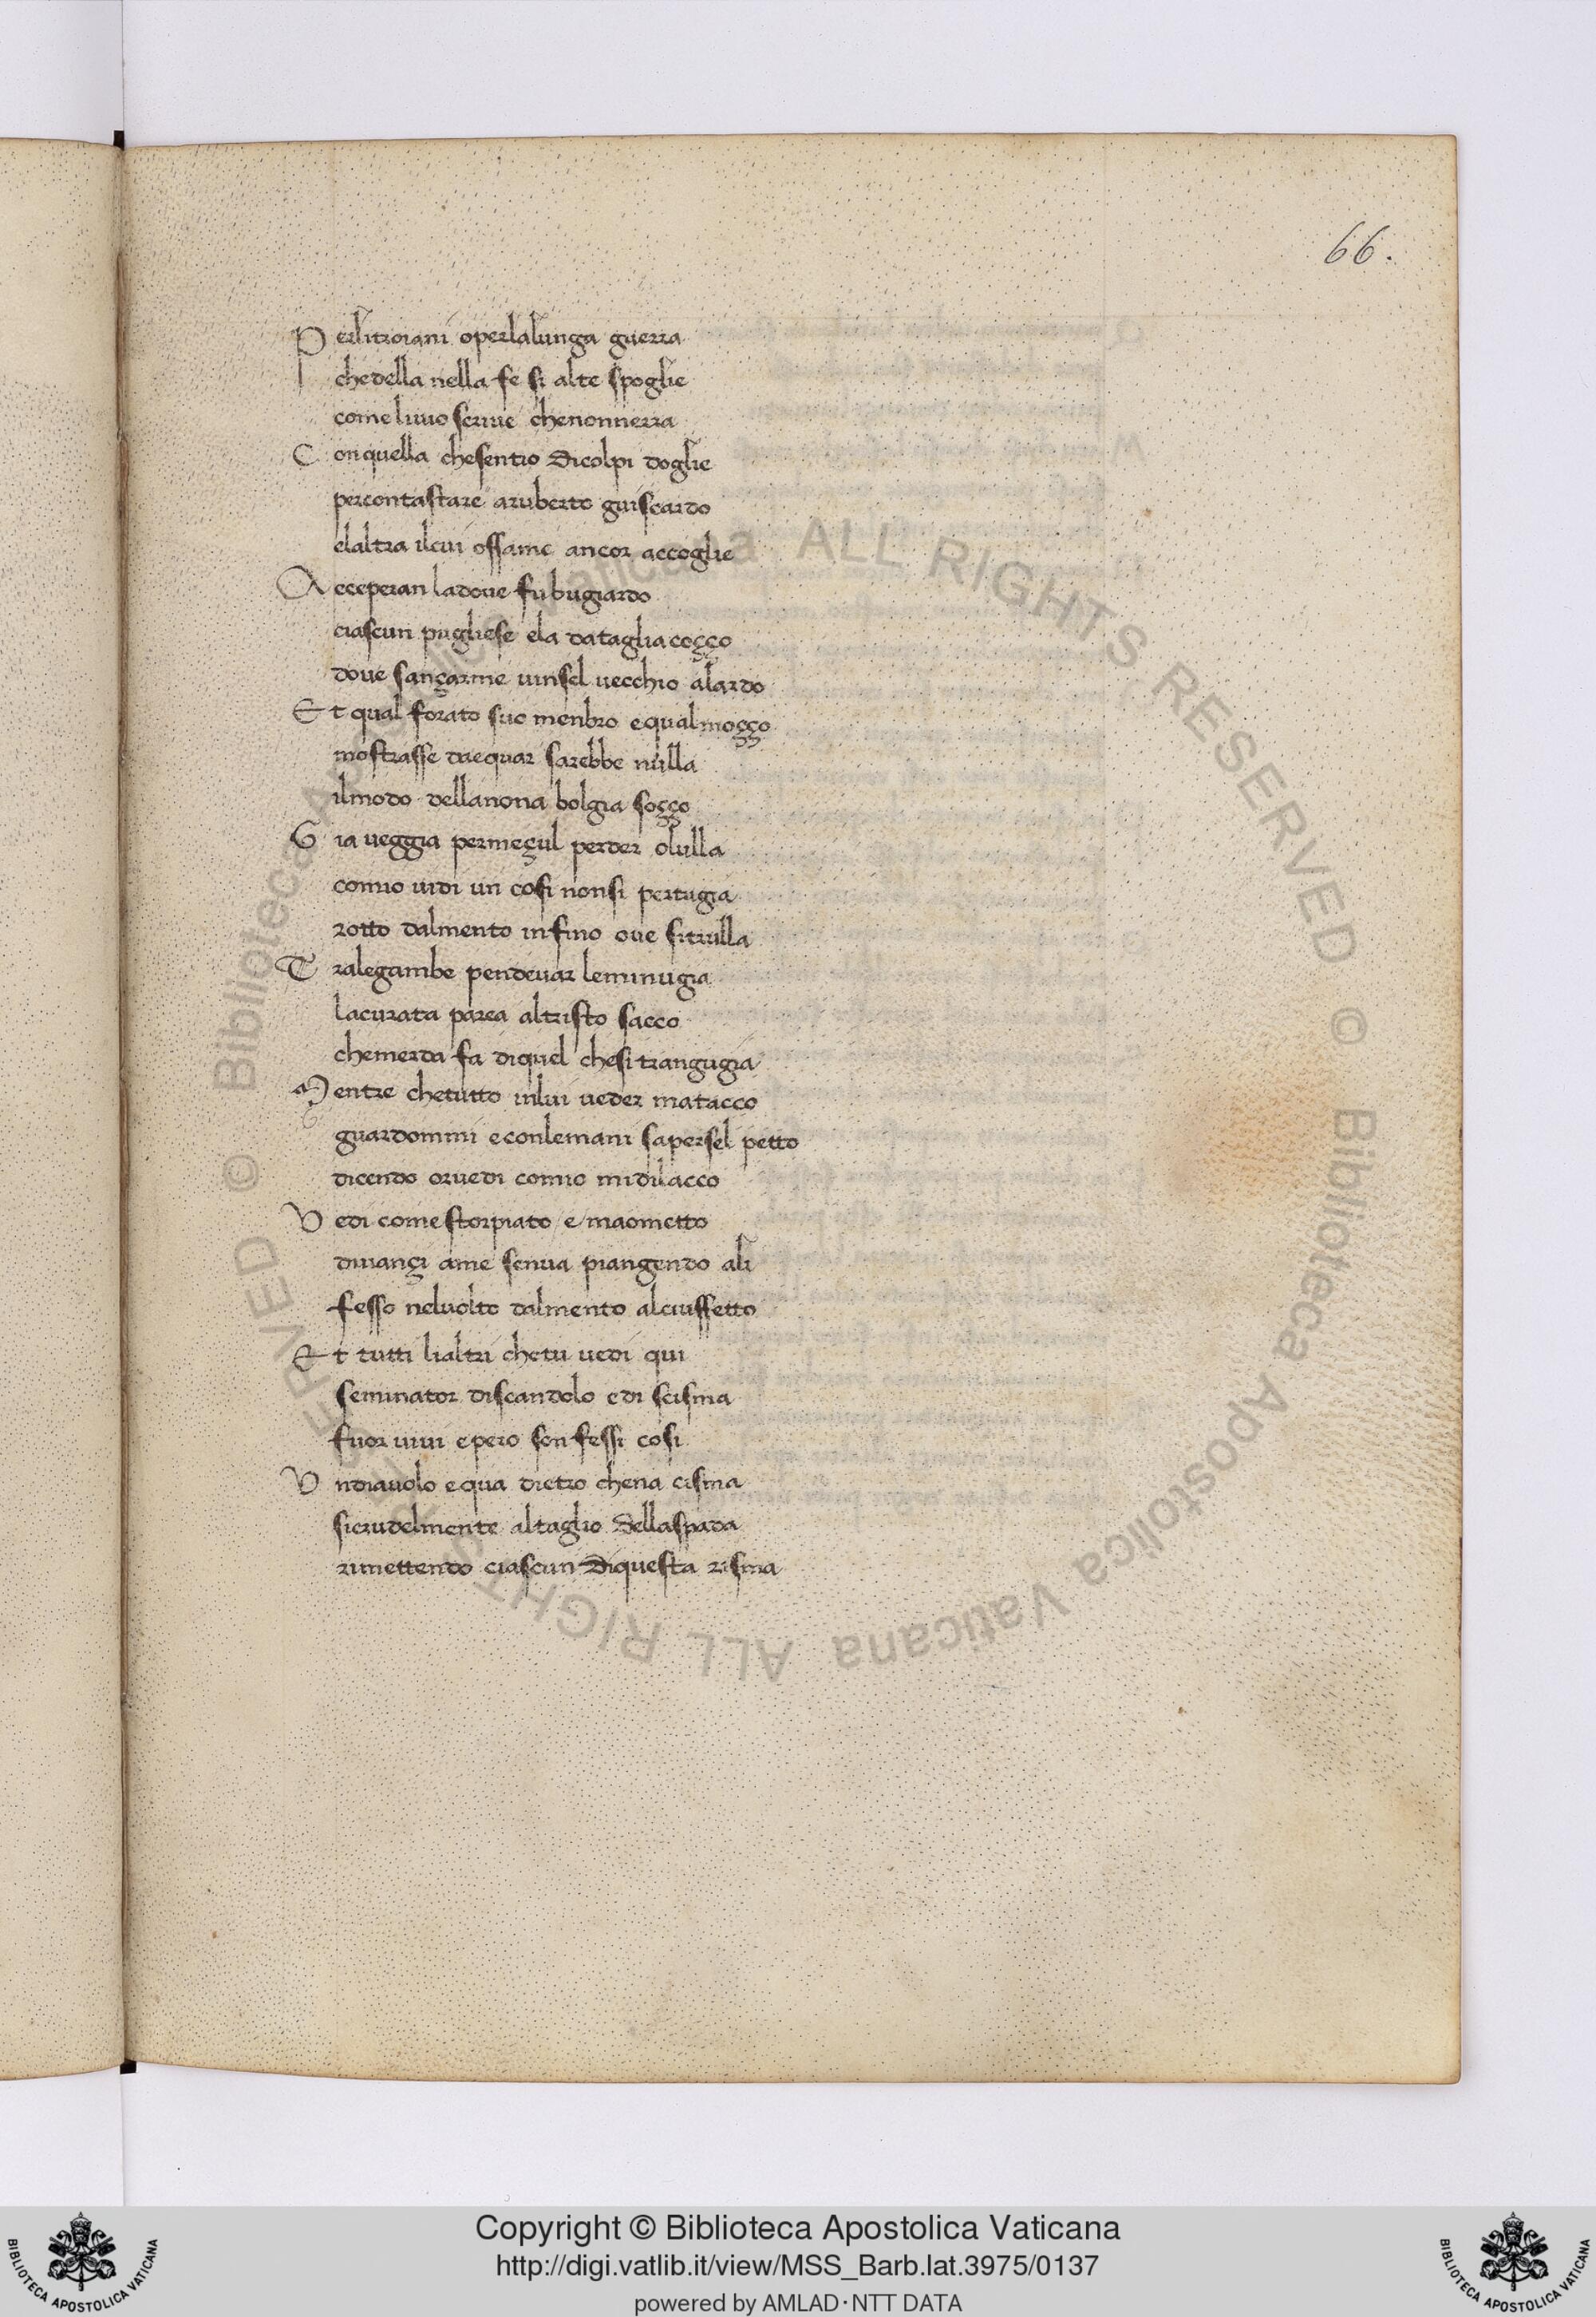 66.
P erlitroiani operlalunga guerra
chedella nella fe si alte spoglie
come liuio scriue chenonnerra
C onquella chesentio dicolpi doglie
percontastare aruberto guiscardo
elaltra ilcui ossame ancor accoglie
A cceperan ladoue fu bugiardo
ciascun pugliese ela dataglia coçço
doue sançarme uinsel uecchio alardo
E t qual forato suo menbro equalmoçço
mostrasse daequar sarebbe nulla
ilmodo dellanona bolgia soçço
G ia ueggia permeçul perder olulla
comio uidi un cosi nonsi pertugia
rotto dalmento infino oue sitrulla
T ralegambe pendeuar leminugia
lacurata parea altristo sacco
chemerda fa diquel chesitrangugia
M entre chetutto inlui ueder matacco
guardommi econlemani sapersel petto
dicendo oruedi comio midilacco
V edi come storpiato e maometto
dinançi ame senua piangendo ali
fesso neluolto dalmento alciuffetto
E t tutti lialtri chetu uedi qui
seminator discandolo edi scisma
fuor uiui epero son fessi cosi
V ndiauolo equa dietro chena cisma
sicrudelmente altaglio dellaspada
rimettendo ciascun diquesta risma
Copyright © Biblioteca Apostolica Vaticana
http://digi.vatlib.it/view/MSS_Barb.lat.3975/0137
powered by AMLAD·NTT DATA